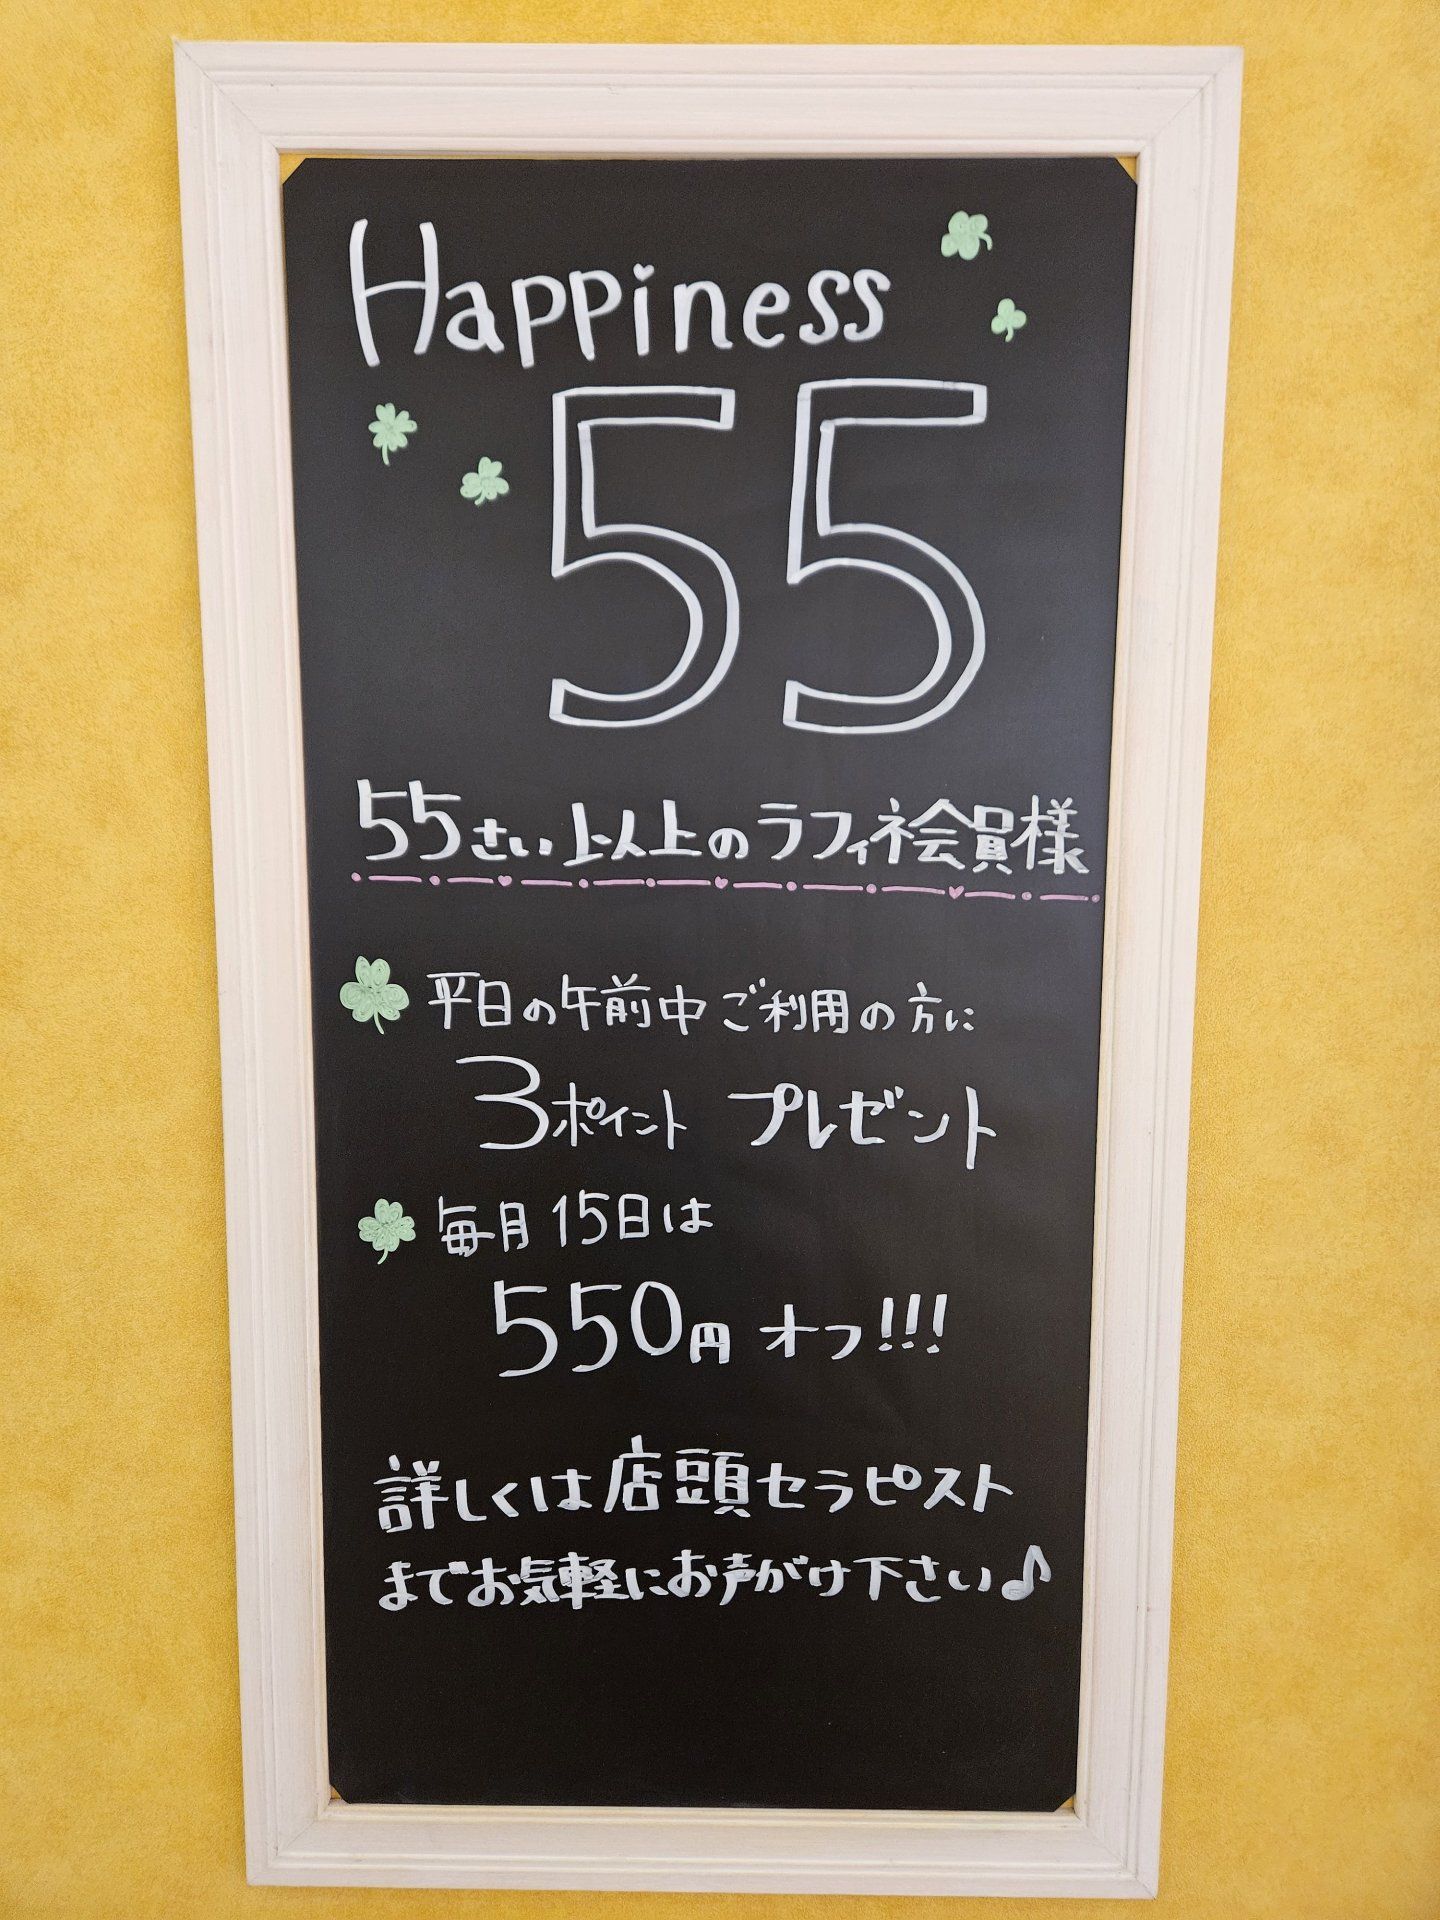 Happiness
55
55さい以上のラフィネ会員様
平日の午前中ご利用の方に
3ポイント プレゼント
毎月15日は
550円 オフ!!!
詳しくは店頭セラピスト
までお気軽にお声がけ下さい♪